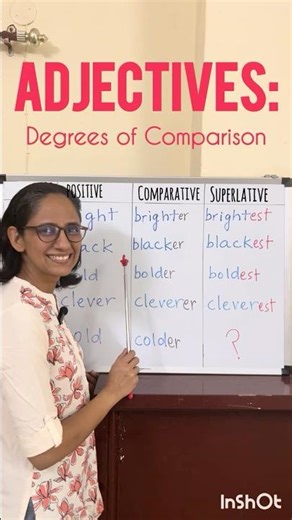 ADJECTIVES:
Degrees of Comparison
POSITIVE COMPARATIVE SUPERLATIVE
ght brighter brightest
ack blacker blackest
ld bolder boldest
clever cleverer cleverest
old colder ?
InShOt